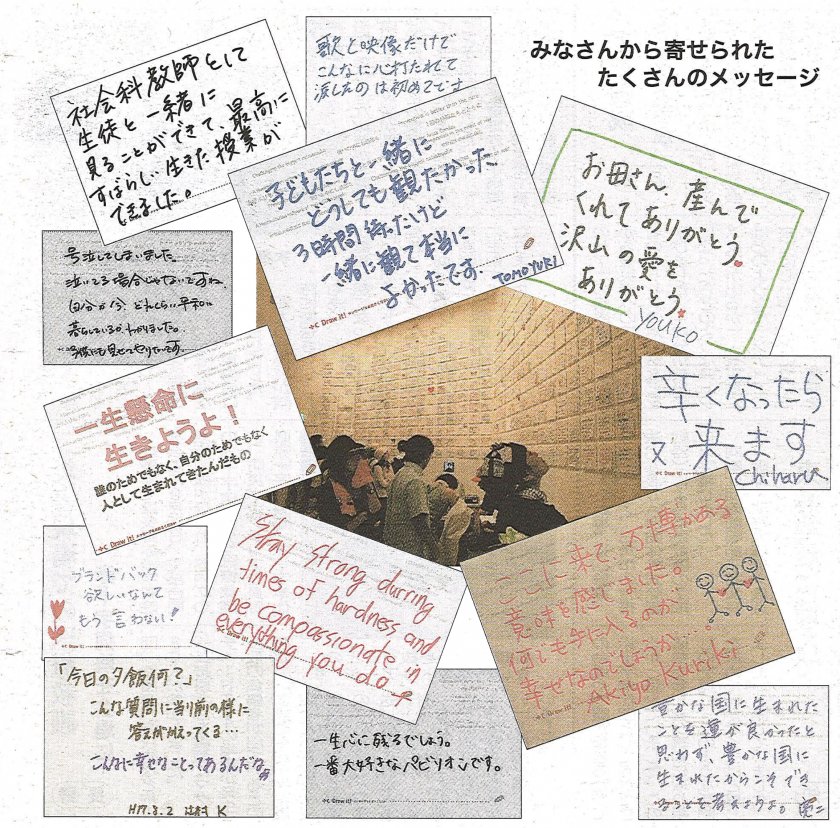 みなさんから寄せられた
たくさんのメッセージ
社会科教師として
生徒と一緒に
見ることができて、最高に
すばらしい生きた授業が
できました。
歌と映像だけで
こんなに心打たれて
涙したのは初めてです
子どもたちと一緒に
どうしても観たかった
3時間待ったけど
一緒に観て本当に
よかったです.
TOMOYURI
お母さん、産んで
くれてありがとう。
沢山の愛を
ありがとう。
YOUKO
号泣してしまいました。
泣いてる場合じゃないですね。
自分が今、どれくらい平和に
暮らしているか、わかりました。
子供にも見せてやりたいです。
C Draw it!
一生懸命に
生きようよ!
誰のためでもなく、自分のためでもなく
人として生まれてきたんだもの
C Draw it!
辛くなったら
又 来ます
Chiharu
C Draw it!
Stay strong durring
times of hardness and
be compassionate in
everything you do
ここに来て 万博がある
意味を感じました。
何でも手に入るのが
幸せなのでしょうか
Akiyo Kuriki
C Draw it!
ブランドバック
欲しいなんて
もう 言わない!
C Draw it!
「今日の夕飯何?」
こんな質問に当り前の様に
答えがかえってくる…
こんなに幸せなことってあるんだな。
H17.8.2 辻村 K
一生心に残るでしょう。
一番大好きなパビリオンです。
C Draw it!
豊かな国に生まれた
ことを運が良かったと
思わず、豊かな国に
生まれたからこそでき
ることを考えようよ。
C Draw it!